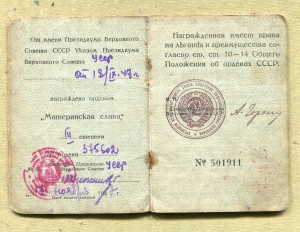 От имени Президиума Верховного
Совета СССР Указом Президиума
Верховного Совета УССР
От 13/IX-47 г.
награждена орденом
„Материнская слава“
III степени
375602
УССР
Награжденная имеет права
на льготы и преимущества со-
гласно ст. ст. 10—14 Общего
Положения об орденах СССР.
№ 501911